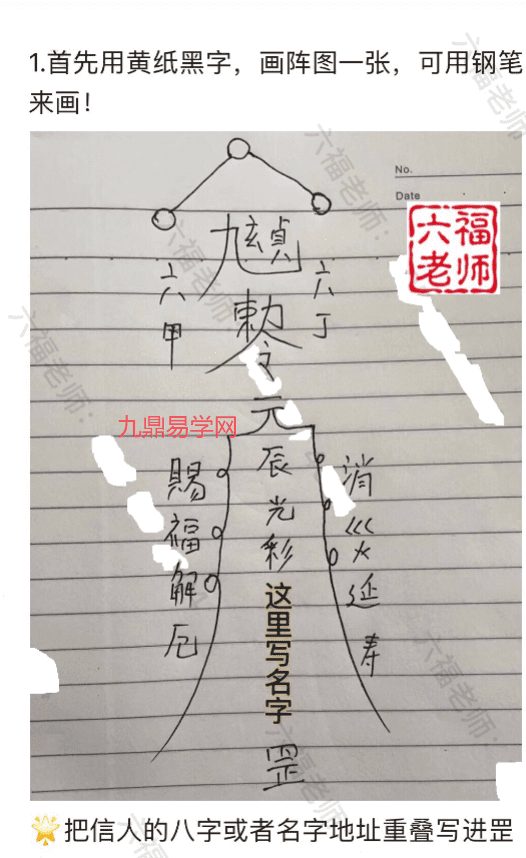 1.首先用黄纸黑字，画阵图一张，可用钢笔
来画！
No.
Date
六福
老师
六甲
六丁
敕令
九鼎易学网
元
辰光彩
这里写名字
罡
賜福解厄
消災延寿
六福老师：
六福老师：
六福老师：
六福老师：
六福老师：
🌟把信人的八字或者名字地址重叠写进罡